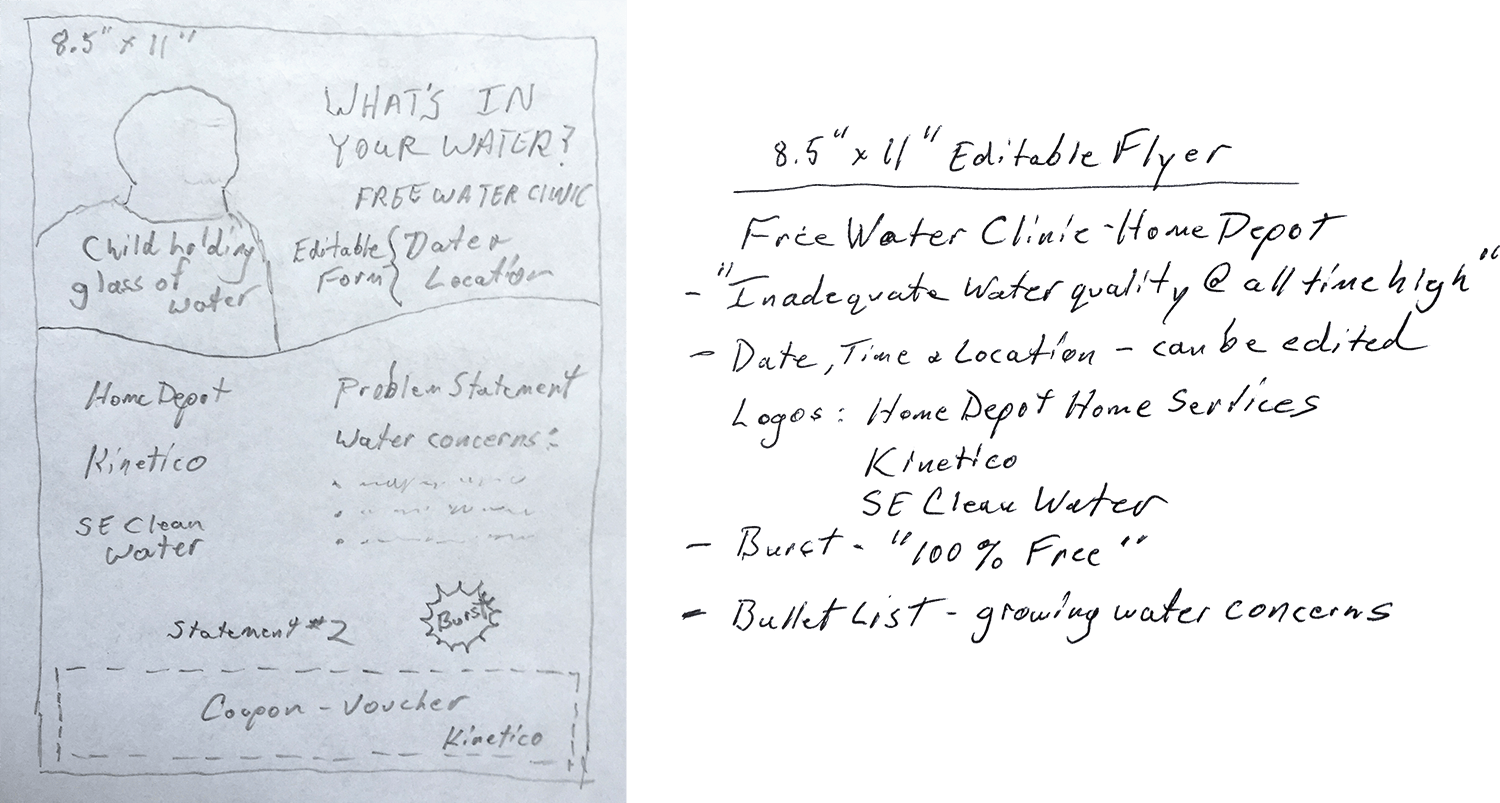 8.5" x 11"
WHAT'S IN
YOUR WATER?
FREE WATER CLINIC
Child holding
glass of
water
Editable
Form
Date
Location
Home Depot
Kinetico
SE Clean
Water
Problem Statement
Water concerns:
Statement #2
Burst
Coupon - Voucher
Kinetico
8.5" x 11" Editable Flyer
Free Water Clinic - Home Depot
- "Inadequate Water quality @ all time high"
- Date, Time & Location - can be edited
Logos: Home Depot Home Services
Kinetico
SE Clean Water
- Burst - "100% Free"
- Bullet List - growing water concerns